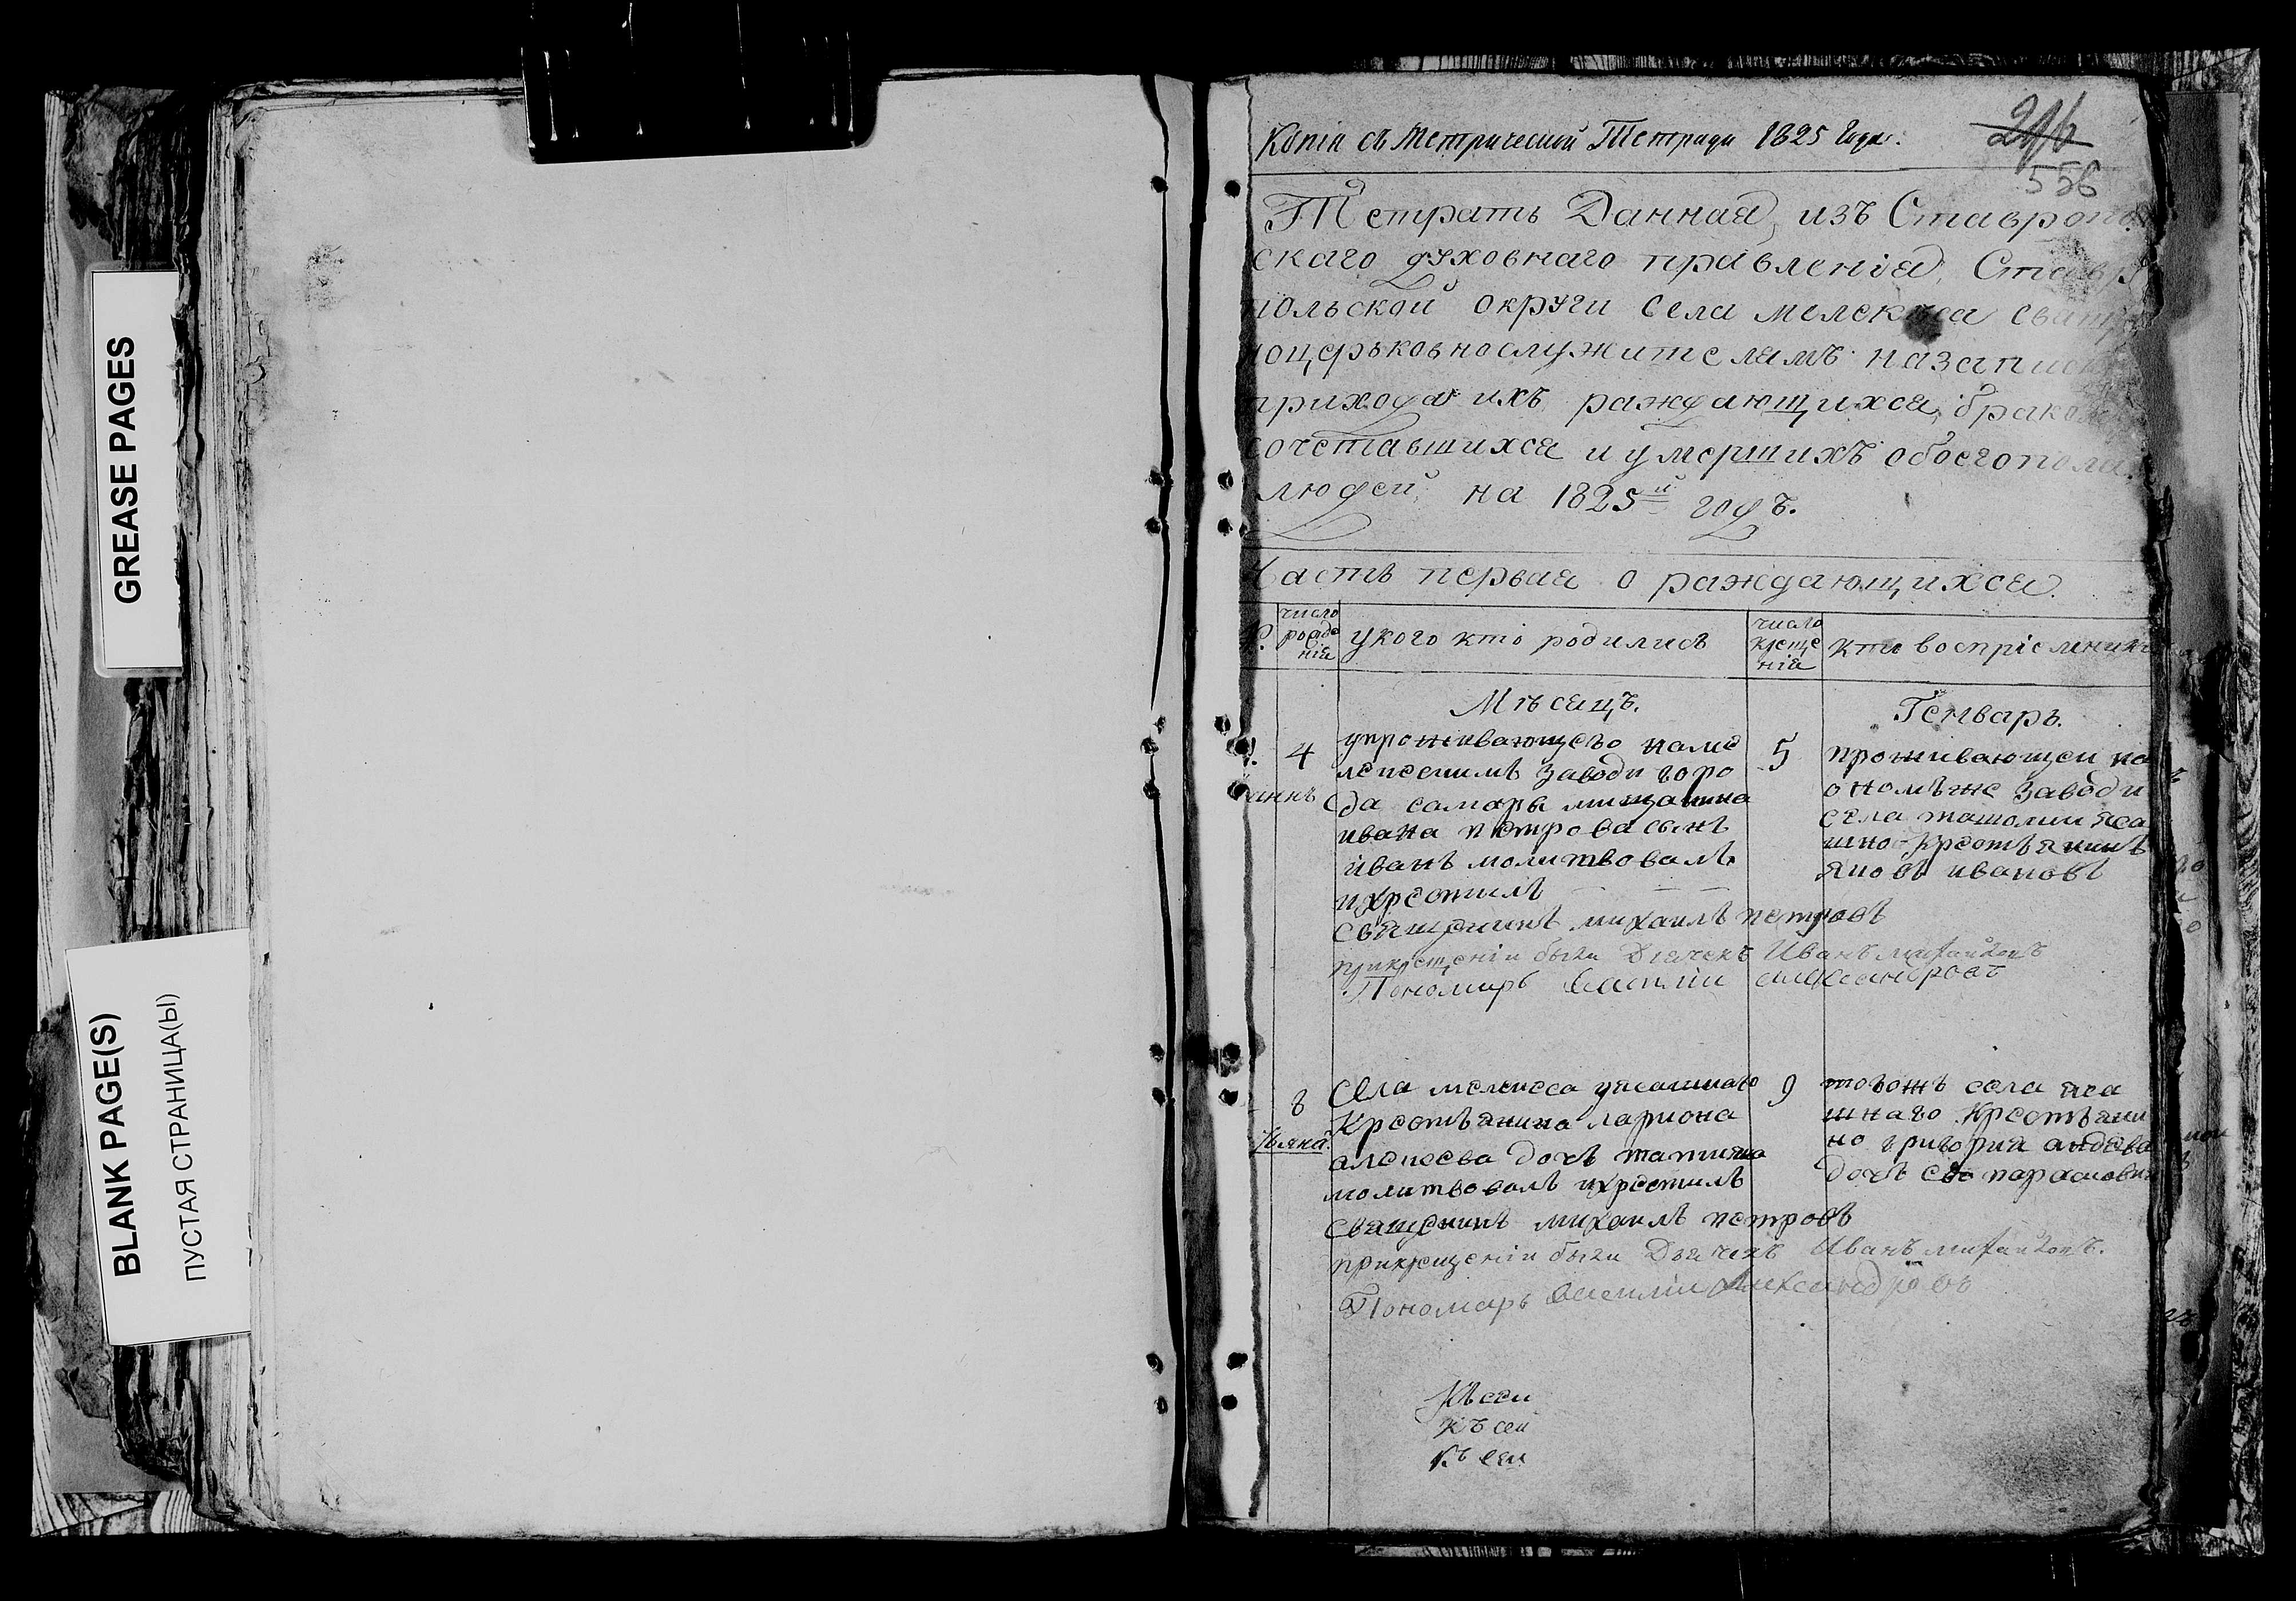 GREASE PAGES
BLANK PAGE(S)
ПУСТАЯ СТРАНИЦА(Ы)
Копія съ Метрической Тетради 1825 Года.
556
Тетрать Данная изъ Ставропо
скаго духовнаго правленія, Ставр
польской округи села мелекеса
ноцерьковнослужителямъ назапис
прихода ихъ раждающихся, брако
сочетавшихся и умершихъ обоегопола
людей, на 1825й годъ.
Часть первая о раждающихся.
число рожденія
укого кто родились
число крещенія
кто воспріемники
Мѣсяцъ.
Генварь.
4
упроживающего
заводи горо
да самары мищанина
ивана петрова сынъ
иванъ молитвовалъ
икрестилъ
священникъ михаилъ петровъ
прикрещеніи были Дьячекъ Иванъ михайловъ
Пономарь василіи александровъ
5
проживающеи на
ономъже заводи
села
шно крестьянинъ
яковъ ивановъ
8
села мелекеса уясашнаго
крестьянина лариона
алексеева дочь татияна
молитвовалъ икрестилъ
священникъ михаилъ петровъ
прикрещеніи были Дьячекъ Иванъ михайловъ.
Пономарь василіи Александровъ
9
тогожъ села яса
шнаго крестьяни
на григория
дочь ево парасковья
Къ сеи
къ сеи
Къ сеи